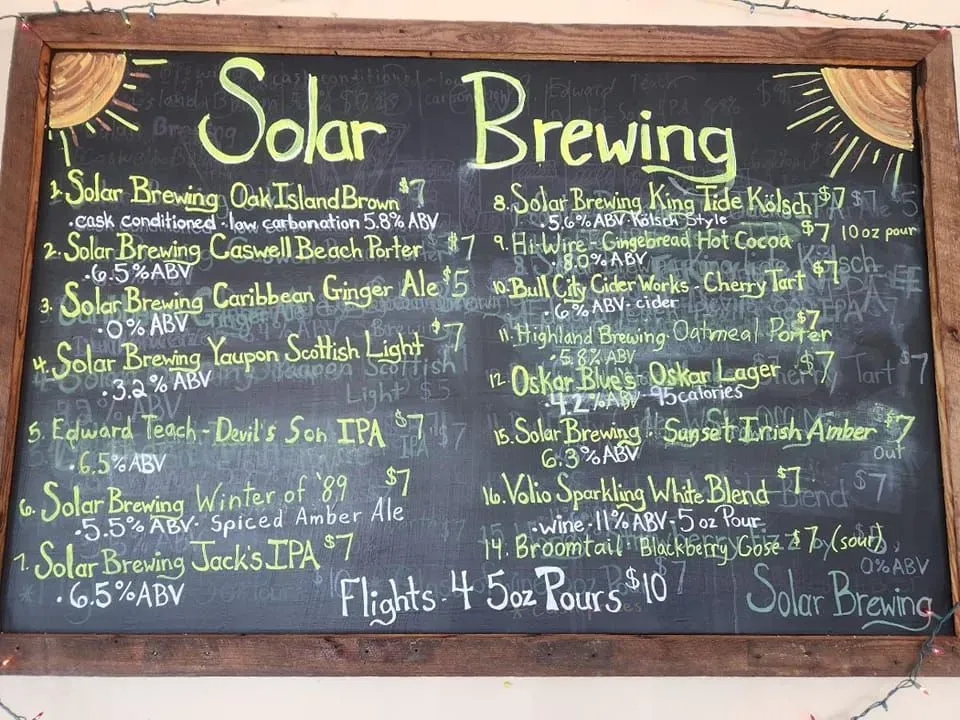 Solar Brewing
1. Solar Brewing Oak Island Brown $7
· cask conditioned - low carbonation 5.8% ABV
2. Solar Brewing Caswell Beach Porter $7
· 6.5% ABV
3. Solar Brewing Caribbean Ginger Ale $5
· 0% ABV
4. Solar Brewing Yaupon Scottish Light $7
· 3.2% ABV
5. Edward Teach - Devil's Son IPA $7
· 6.5% ABV
6. Solar Brewing Winter of '89 $7
· 5.5% ABV · Spiced Amber Ale
7. Solar Brewing Jack's IPA $7
· 6.5% ABV
8. Solar Brewing King Tide Kölsch $7
· 5.6% ABV · Kölsch Style
9. Hi-Wire - Gingebread Hot Cocoa $7 10 oz pour
· 8.0% ABV
10. Bull City Cider Works - Cherry Tart $7
· 6% ABV - cider
11. Highland Brewing · Oatmeal Porter $7
· 5.8% ABV
12. Oskar Blue's Oskar Lager $7
· 4.2% ABV · 95 calories
15. Solar Brewing · Sunset Irish Amber $7
6.3% ABV
out
16. Volio Sparkling White Blend $7
· wine · 11% ABV - 5 oz Pour
14. Broomtail · Blackberry Gose - $7 (sour)
0% ABV
Flights - 4 5oz Pours $10
Solar Brewing